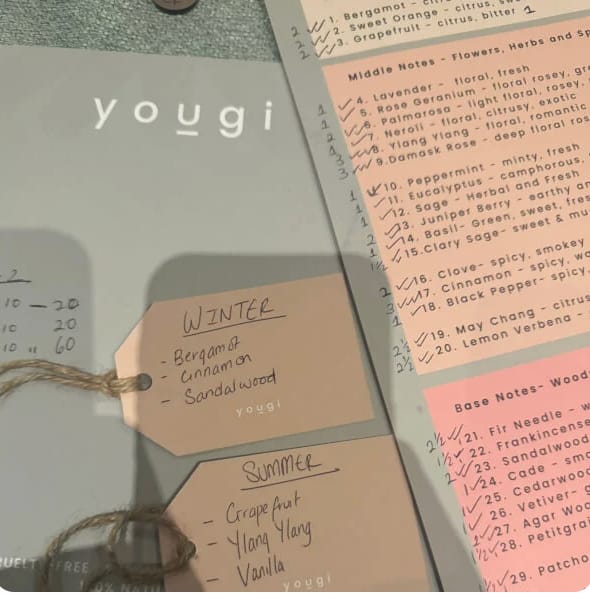 yougi
2
10 — 20
10 20
10 " 60
WINTER
- Bergamot
- Cinnamon
- Sandalwood
yougi
SUMMER
- Grapefruit
- Ylang Ylang
- Vanilla
yougi
-FREE
2 1. Bergamot -
2 2. Sweet Orange - citrus,
2 3. Grapefruit - citrus, bitter 1
Middle Notes - Flowers, Herbs and
1 4. Lavender - floral, fresh
1 5. Rose Geranium - floral rosey,
2 6. Palmarosa - light floral, rosey,
7. Neroli - floral, citrusy, exotic
3 8. Ylang Ylang - floral, romantic
3 9.Damask Rose - deep floral
1 10. Peppermint - minty, fresh
1 11. Eucalyptus - camphorous,
1 12. Sage - Herbal and Fresh
13. Juniper Berry - earthy
2 14. Basil- Green, sweet,
1 15.Clary Sage- sweet &
1½
2 16. Clove- spicy, smokey
3 17. Cinnamon - spicy,
1 18. Black Pepper- spicy,
2½ 19. May Chang - citrus
2½ 20. Lemon Verbena -
Base Notes- Wood
2½ 21. Fir Needle -
1½ 22. Frankincense
2 23. Sandalwood
1 24. Cade -
1 25. Cedarwood
1 26. Vetiver-
2 27. Agar
1½ 28. Petitgrain
1½ 29.